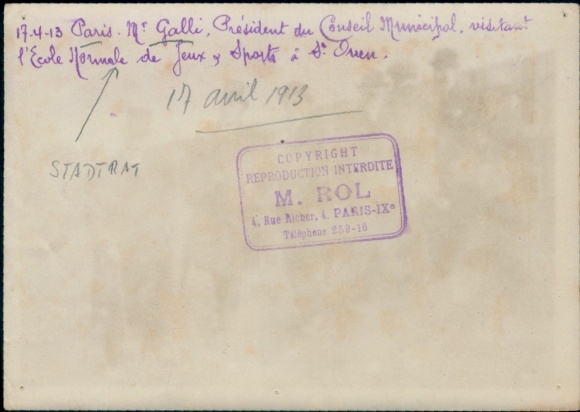 17-4-13 Paris. Mr Galli, Président du Conseil Municipal, visitant
l'École Normale de Jeux & Sports à St Ouen.
17 avril 1913
STADTRAT
COPYRIGHT
REPRODUCTION INTERDITE
M. ROL
4, Rue Richer, 4, PARIS-IXe
Téléphone 259-16